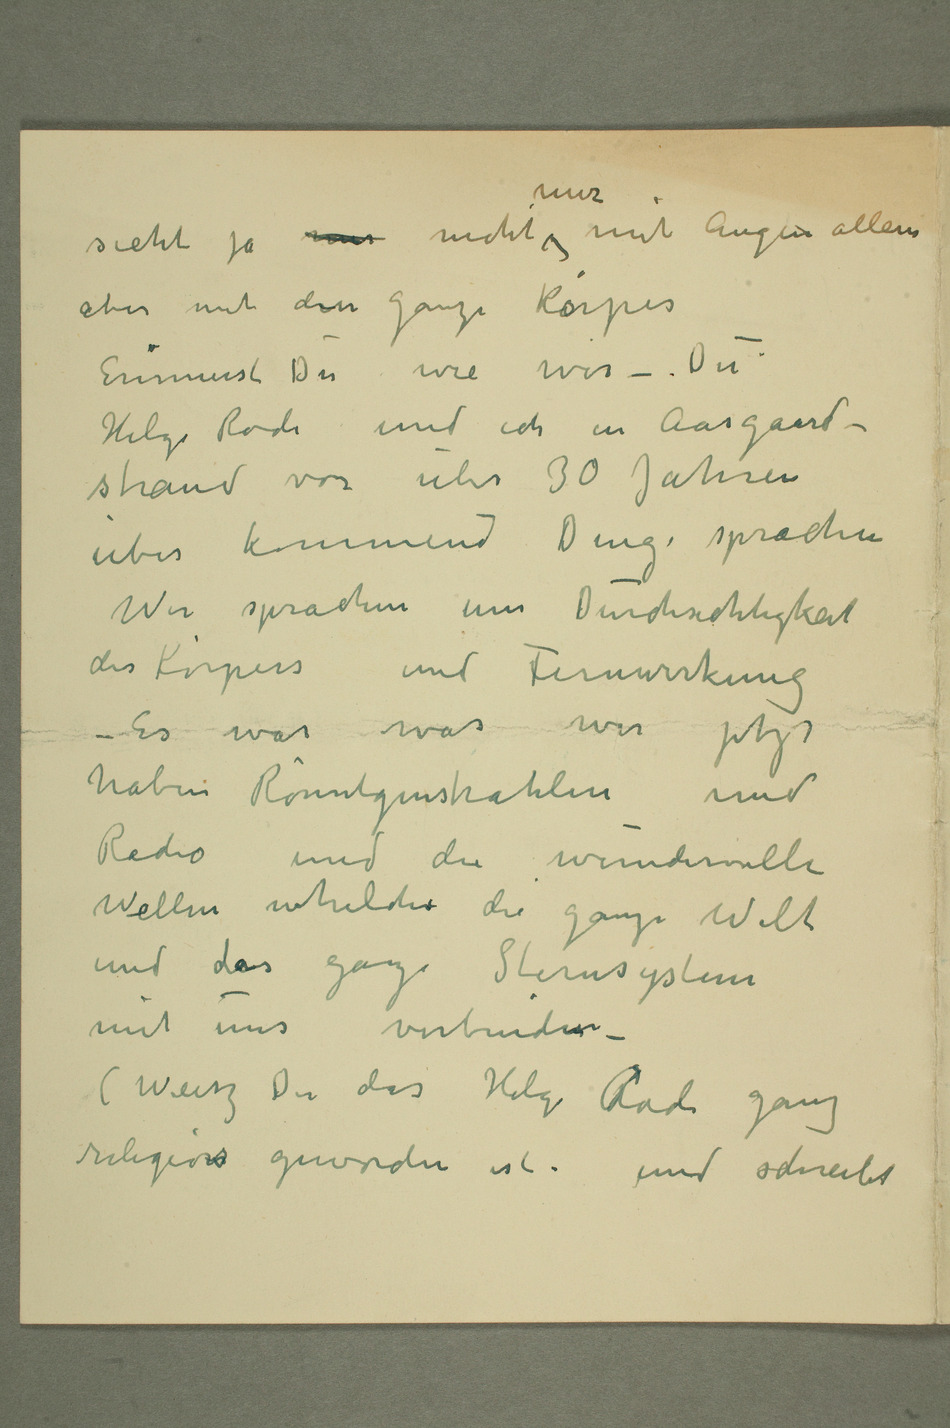 sieht ja nur nicht nur mit Augen allein
aber mit den ganze Körper
Erinnerst Du wie wir –. Du
Helge Rode und ich in Aasgaard–
strand vor über 30 Jahren
über kommend Dinge sprachen
Wir sprachen um Durchsichtigkeit
des Körpers und Fernwirkung
– Es war was wir jetzt
haben Rönntgenstrahlen und
Radio und die wundervolle
Wellen die ganze Welt
und das ganze Sternsystem
mit uns verbinden –
(Weitz Du das Helge Rode ganz
religiös geworden ist. und schreibt